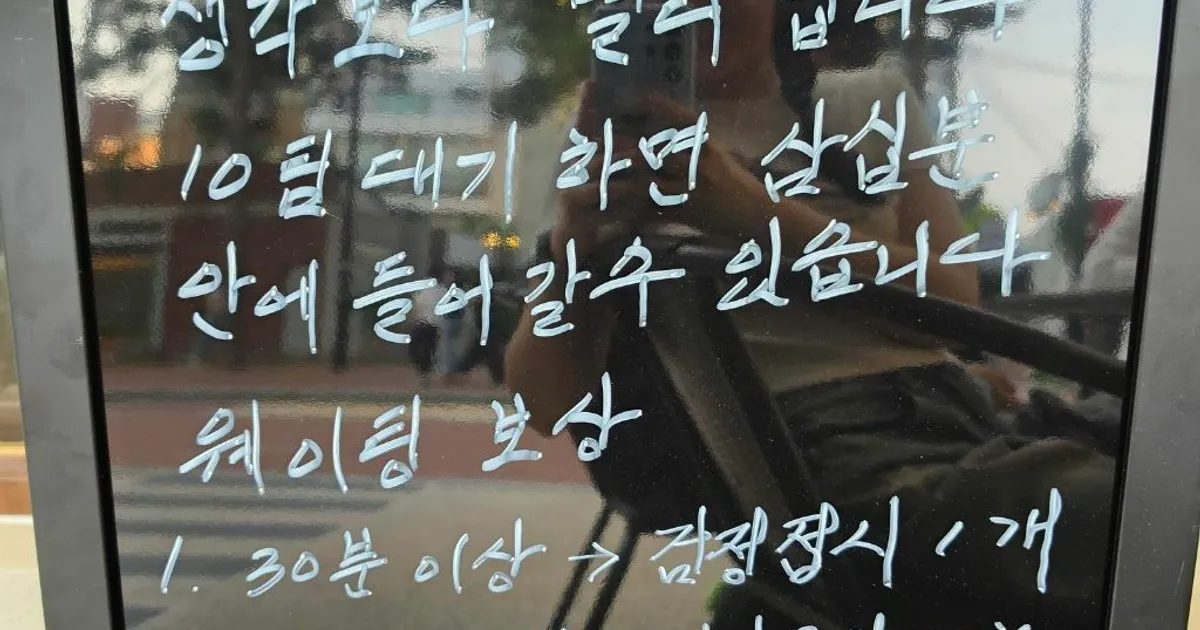 생각보다 빨리 됩니다
10팀 대기 하면 삼십분
안에 들어갈수 있습니다
웨이팅 보상
1. 30분 이상 -> 검정접시 1개